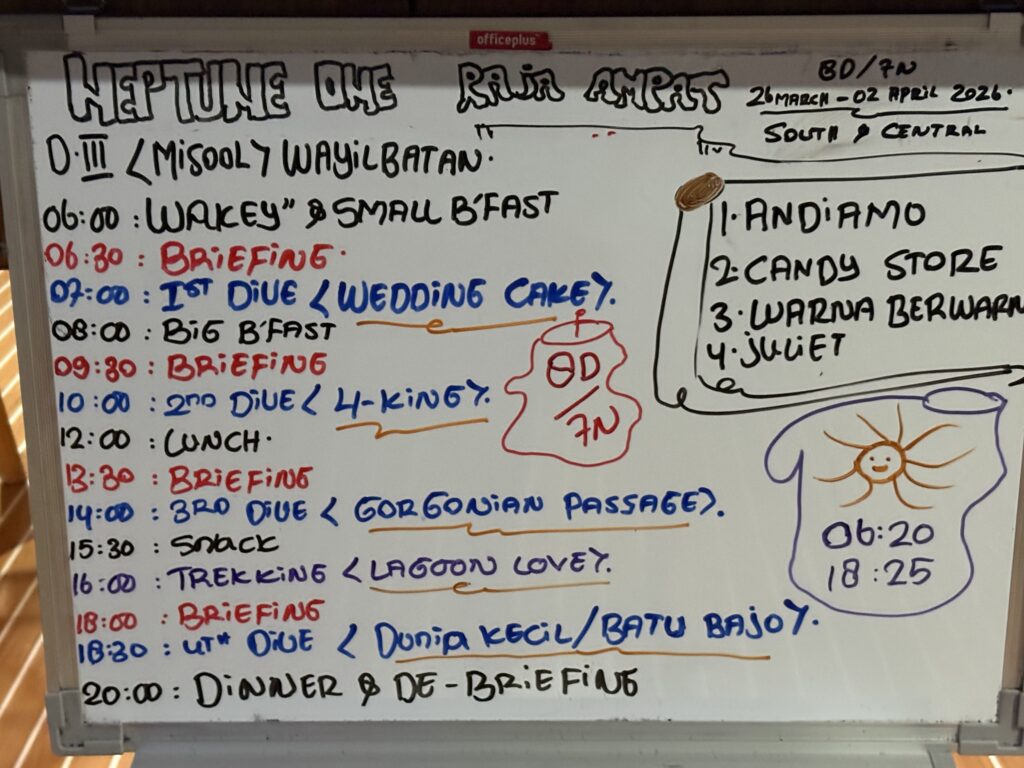 officeplus
NEPTUNE ONE RAJA AMPAT
8D/7N
26 MARCH - 02 APRIL 2026.
SOUTH & CENTRAL
D.III <MISOOL> WAYILBATAN.
06:00 : WAKEY" & SMALL B'FAST
06:30 : BRIEFING.
07:00 : 1ST DIVE <WEDDING CAKE>.
08:00 : BIG B'FAST
09:30 : BRIEFING
10:00 : 2ND DIVE < 4-KING>.
12:00 : LUNCH.
13:30 : BRIEFING
14:00 : 3RD DIVE < GORGONIAN PASSAGE>.
15:30 : SNACK
16:00 : TREKKING <LAGOON LOVE>.
18:00 : BRIEFING
18:30 : 4TH DIVE < DUNIA KECIL/BATU BAJO>.
20:00 : DINNER & DE-BRIEFING
1. ANDIAMO
2. CANDY STORE
3. WARNA BERWARN
4. JULIET
8D/7N
06:20
18:25